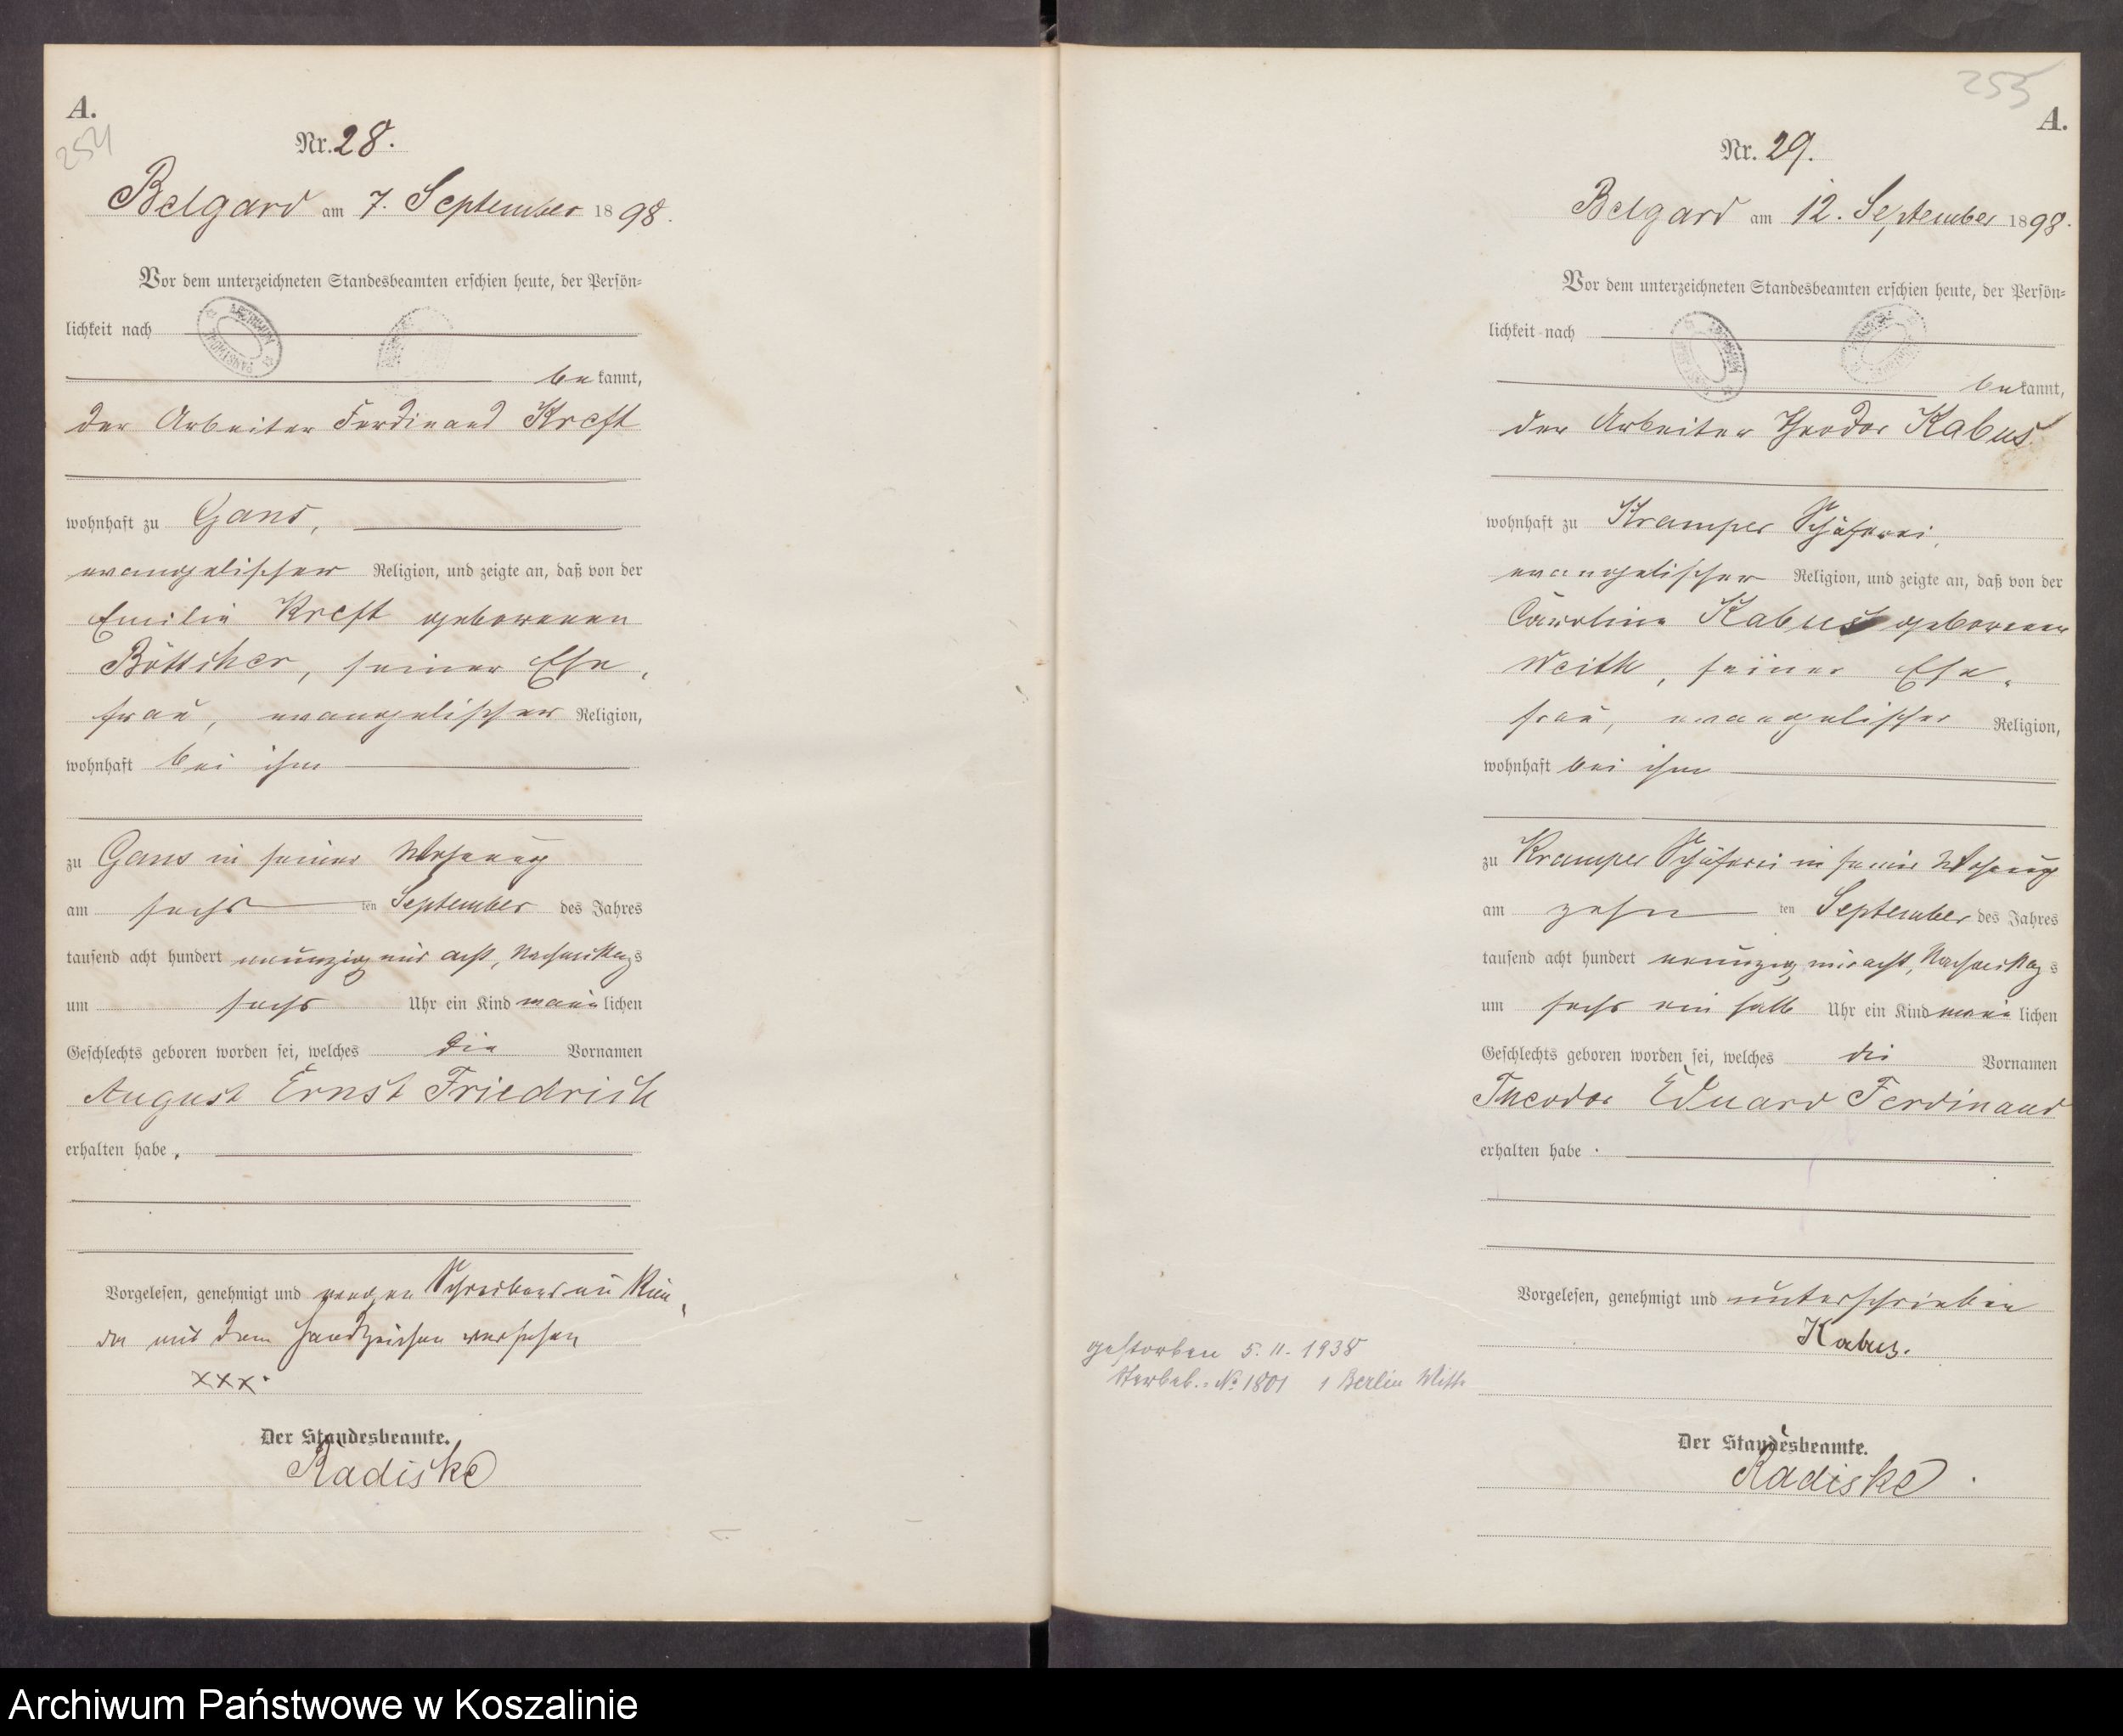 A.
254
Nr. 28.
Belgard am 7. September 1898.
Vor dem unterzeichneten Standesbeamten erschien heute, der Persön-
lichkeit nach
bekannt,
der Arbeiter Ferdinand Kreft
wohnhaft zu Gans,
evangelischer Religion, und zeigte an, daß von der
Emilie Kreft geborenen
Böttcher, seiner Ehe-
frau, evangelischer Religion,
wohnhaft bei ihm
zu Gans in seiner Wohnung
am sechsten September des Jahres
tausend acht hundert neunzig und acht, Nachmittags
um sechs Uhr ein Kind männlichen
Geschlechts geboren worden sei, welches die Vornamen
August Ernst Friedrich
erhalten habe.
Vorgelesen, genehmigt und wegen Schreibensunkun-
de mit dem Handzeichen versehen
xxx.
Der Standesbeamte.
Radiske
255
A.
Nr. 29.
Belgard am 12. September 1898.
Vor dem unterzeichneten Standesbeamten erschien heute, der Persön-
lichkeit nach
bekannt,
der Arbeiter Theodor Kabus
wohnhaft zu Kramper Schäferei,
evangelischer Religion, und zeigte an, daß von der
Caroline Kabus geborenen
Weith, seiner Ehe-
frau, evangelischer Religion,
wohnhaft bei ihm
zu Kramper Schäferei in seiner Wohnung
am zehnten September des Jahres
tausend acht hundert neunzig und acht, Nachmittags
um sechs ein halb Uhr ein Kind männlichen
Geschlechts geboren worden sei, welches die Vornamen
Theodor Eduard Ferdinand
erhalten habe.
Vorgelesen, genehmigt und unterschrieben
Kabus.
gestorben 5.11.1938
Sterbeb.-No 1801 Berlin Mitte
Der Standesbeamte.
Radiske
Archiwum Państwowe w Koszalinie